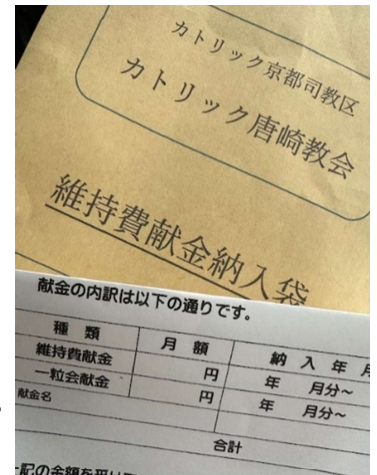 カトリック京都司教区
カトリック唐崎教会
維持費献金納入袋
献金の内訳は以下の通りです。
種 類 月 額 納 入 年 月
維持費献金 円 年 月分~
一粒会献金 円 年 月分~
献金名
合計
記の金額を